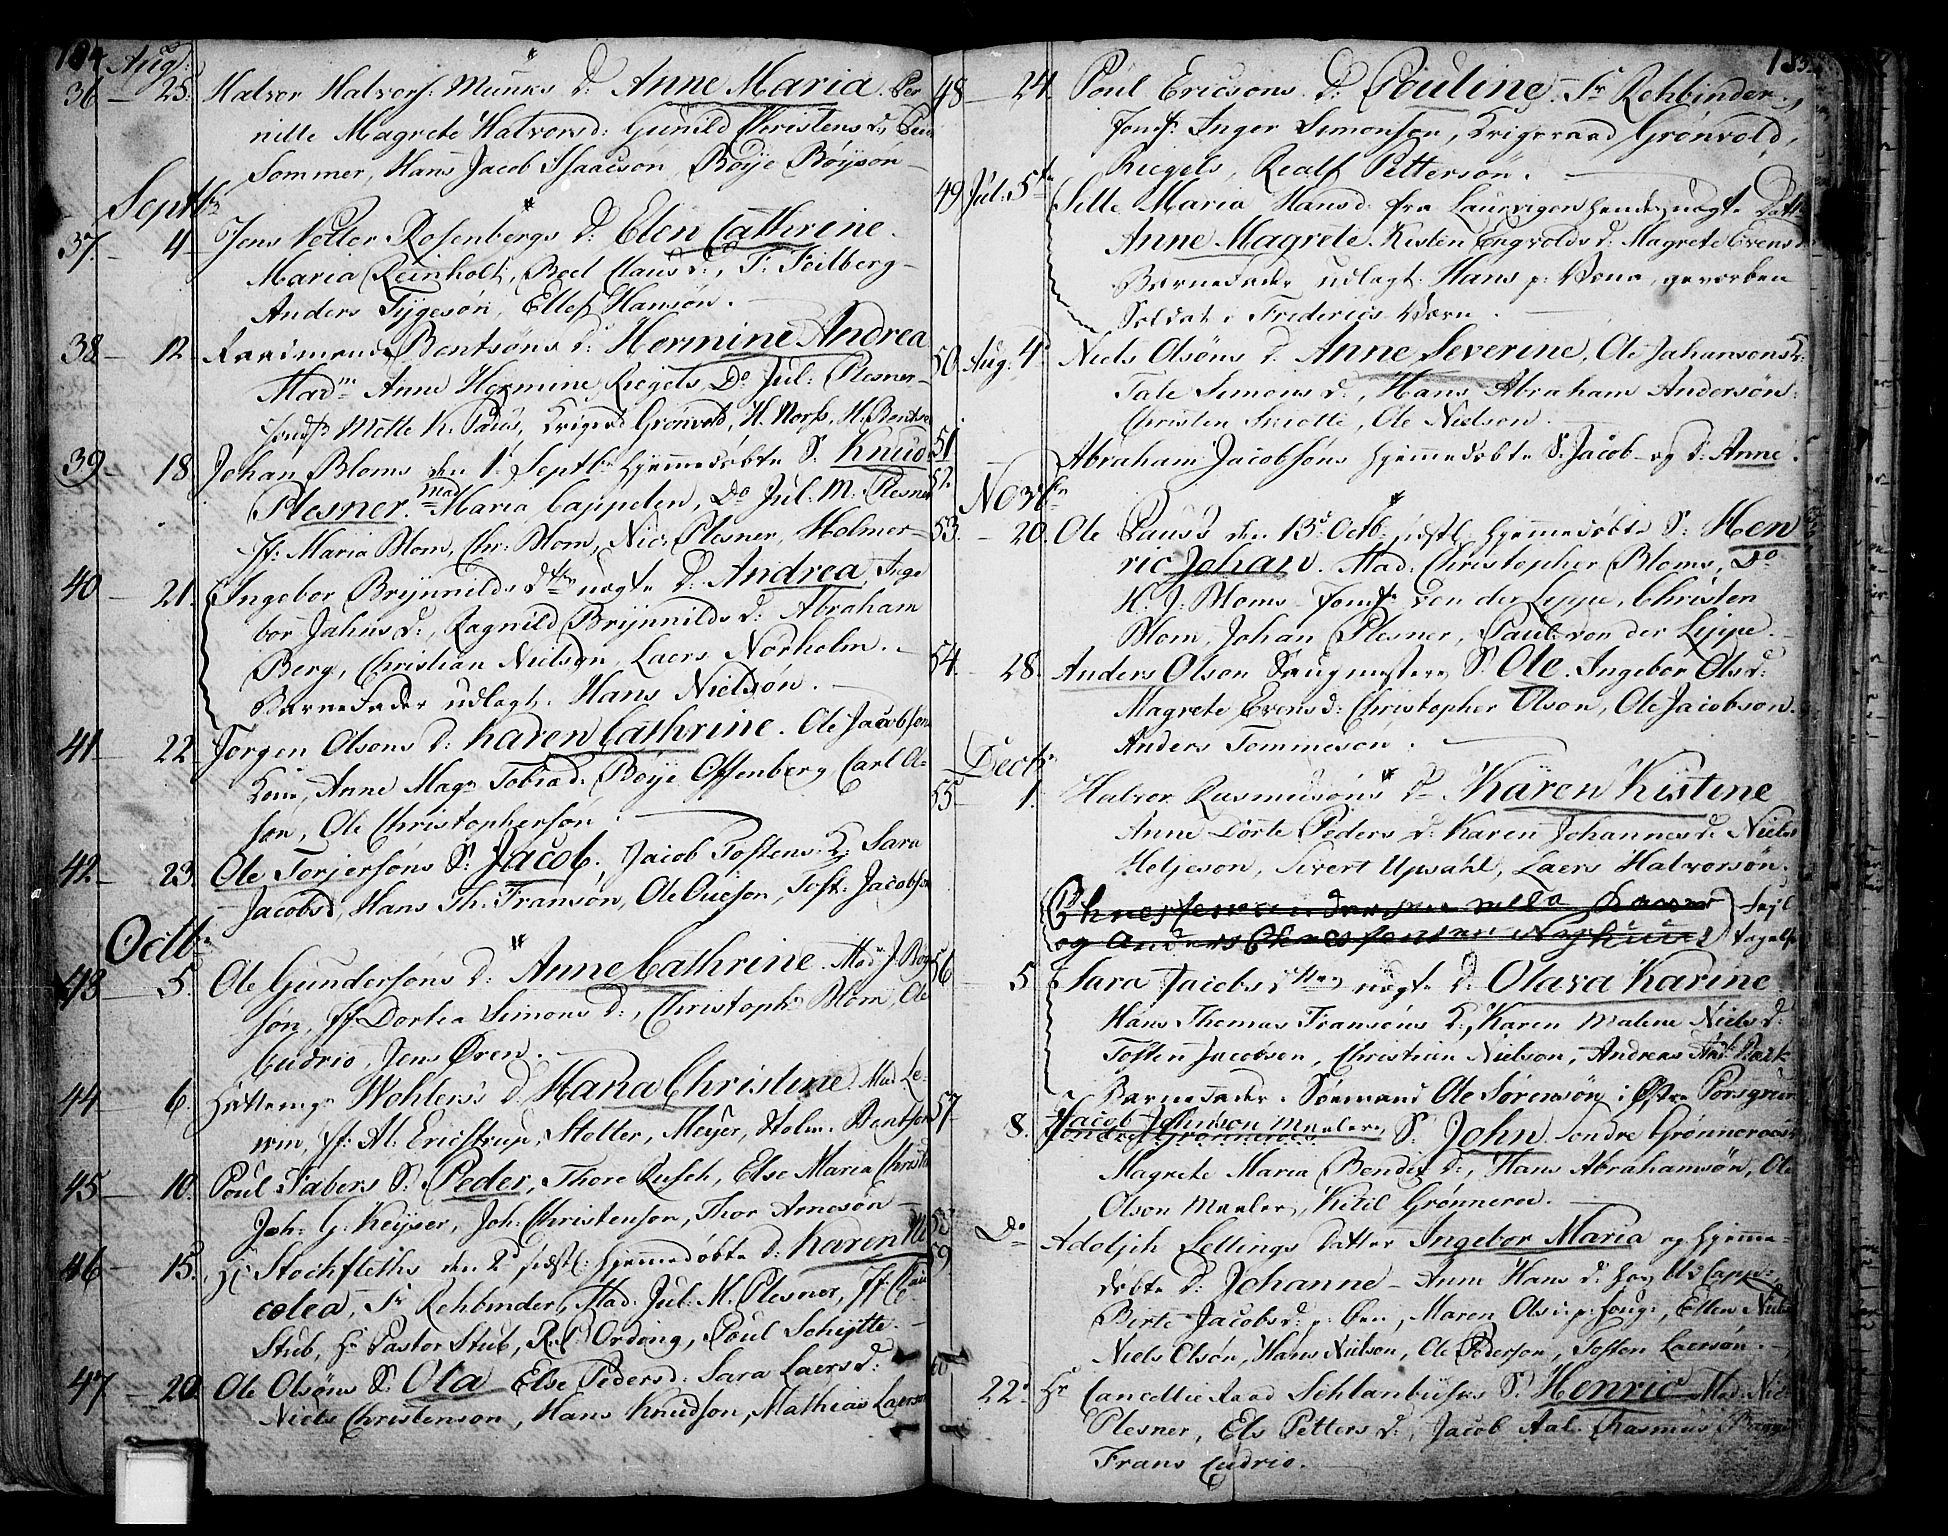 184 Aug:
36 — 25. Halvor Halvors: Munks D: Anne Maria. Per
nille Magrete Halvorsd: Gunild Christens d:
Sommer, Hans Jacob Isaacsøn, Böÿe Böysøn —
Septbr
37. 4 — Jens Petter Rosenbergs D: Elen Cathrine.
Maria Reinholt, Beel Claus d:, F: Feilberg —
Anders Tÿgesøn, Ellef Hansøn. —
38 — 12. Bentsøns D: Hermine Andrea
Madm Anne Hermine Riegels, Do Jul: Plesner —
Jomf. Mette K. Paus, Krigsrd Grönvold, H. Bentsøn
39 — 18. Johan Bloms den 1. Septbr hjemmedøbte S. Knud
Plesner. Mad Maria Cappelen, Do Jul. M. Plesner
Jf: Maria Blom, Chr: Blom, Nic: Plesner, Holmer —
40 — 21. Ingebor Brÿnnilds dtrs uægte D. Andrea, Inge
bor Jahns d:, Ragnild Brÿnnilds d: Abraham
Berg, Christian Nielsøn, Laers Norholm. —
Barnefader udlagt. Hans Nielsøn. —
41 — 22 Jørgen Olsøns D: Karen Cathrine. Ole Jacobsøns
Kone, Anne Magr Tobiasd. Böÿe Offenberg Carl O-
søn, Ole Christophersøn. —
42 — 23. Ole Torjersøns S: Jacob, Jacob Tostens K: Sara
Jacobsd, Hans Th. Fransøn, Ole Ouesøn, Tost: Jacobsøn
Octbr
43 — 5. Ole Gundersøns D: Anne Cathrine. Mad J. Böÿ
søn, Jf Dortea Simons d:, Christoph: Blom, Ole
Cudrio, Jens Øren. —
44 — 6. Wohlers D. Maria Christine. Mad Le-
win, Jf: Al: Ericstrup, Møller, Meÿer, Holm. Bentsøn
45 — 10. Poul Fabers S: Peder, Thore Rusch, Else Maria Christ
Joh: G. Keÿser, Joh: Christensøn, Thor Arnesøn —
46 — 15. Hr Stochfleths den 2. hjemmedøbte D: Karen Ni
colea, Fr Rehbinder, Mad. Jul. M. Plesner, Jf:
Stub, Hr Pastor Stub, R. C. Ording, Poul Schÿtte. —
47 — 20. Ole Olsøns S: Ola Else Pedersd: Sara Laersd:
Niels Christensøn, Hans Knudsøn, Mathias Laersøn
185.
48 — 24. Poul Ericsøns D: Pouline. Fr Rehbinder,
Jomf: Inger Simonsøn, Krigsraad Grønvold,
Riegels, Realf Pettersøn.
49. Jul: 5te Sille Maria Hansd. fra Laurvigen hendes uægte Datter
Anne Magrete. Kisten Engvolds d: Magrete Evens d:
Barnefader udlagt. Hans p: gevorben
Soldat i Friderics Værn.
50. Aug: 4d Niels Olsøns D. Anne Severine, Ole Johansøns K:
Tale Simons d:, Hans Abraham Andersøn:
Christen Smette, Ole Nielsøn.
51
52. Abraham Jacobsøns hjemmedøbte S. Jacob og D: Anne.
Novbr
53. — 20. Ole Pauss den 13de Octb: hjemmedøbte S: Hen
ric Johan. Mad: Christopher Bloms, Do
H. J: Bloms — Jomfr von der Lippe, Christen
Blom, Johan Plesner, Paul von der Lippe. —
54. — 28. Anders Olsøn Saugmesters S: Ole. Ingebor Olsd:
Magrete Evensd: Christopher Olsøn, Ole Jacobsøn.
Anders Tommesøn.
Dectbr
55 — 1. Halvor Rasmusøns D Karen Kistine
Anne Dorte Peders d: Karen Johannes d: Niels
Heljesøn, Sivert Upsahl, Laers Halvorsøn.
56 — 5. Sara Jacobs dtrs uægte D: Olava Karine
Hans Thomas Fransøns K:, Karen Malene Niels d:
Tosten Jacobsen, Christian Nielsøn, Andreas
Barnefader. Sømand Ole Sørensøn i Østre Porsgrund
57 — 8. Jacob Johnsøn Mæler S: John. Søndre Grønneroes K.
Magrete Maria Bendix d:, Hans Abrahamsøn, Ole
Olsøn Mæeler, Kitil Grønneroe. —
58
59 Do Adolph Sellings Datter Ingebor Maria og hjemme-
døbte D: Johanne — Anne Hans d:
Birte Jacobs d: p: Øen, Maren Olsd: p: Houg, Ellen Niels
Niels Olsøn, Hans Nielsøn, Ole Pedersøn, Tosten Laersøn. —
60 22. Hr Cancellie Raad Schlanbusks S. Henric. Mad. Nic
Plesner, Els Petters d:, Jacob Aal. Rasmus
Frans Cudrio.